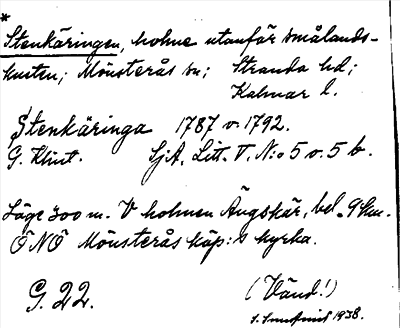 *
Stenkäringen, holme utanför smålands-
kusten; Mönsterås sn; Stranda hd;
Kalmar l.
Stenkäringa 1787 o. 1792.
G. Klint. SjA. Litt. V. N:o 5 o. 5 b.
Läge 300 m. V holmen Ängskär, bel. 9 km.
ÖNÖ Mönsterås köp:s kyrka.
G. 22. (Vänd!)
1938.